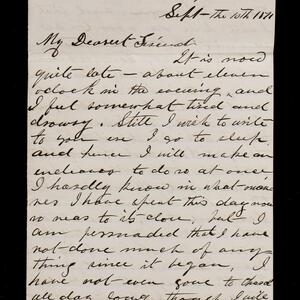 Sept - the 10th 1871
My Dearest Friend
It is now
quite late - about eleven
oclock in the evening, and
I feel somewhat tired and
drowsy. Still I wish to write
to you ere I go to sleep
and hence I will make an
endeavor to do so at once
I hardly know in what man
ner I have spent this day now
so near to its close, but I
am persuaded that I have
not done much of any
thing since it began, I
have not even gone to
all day long